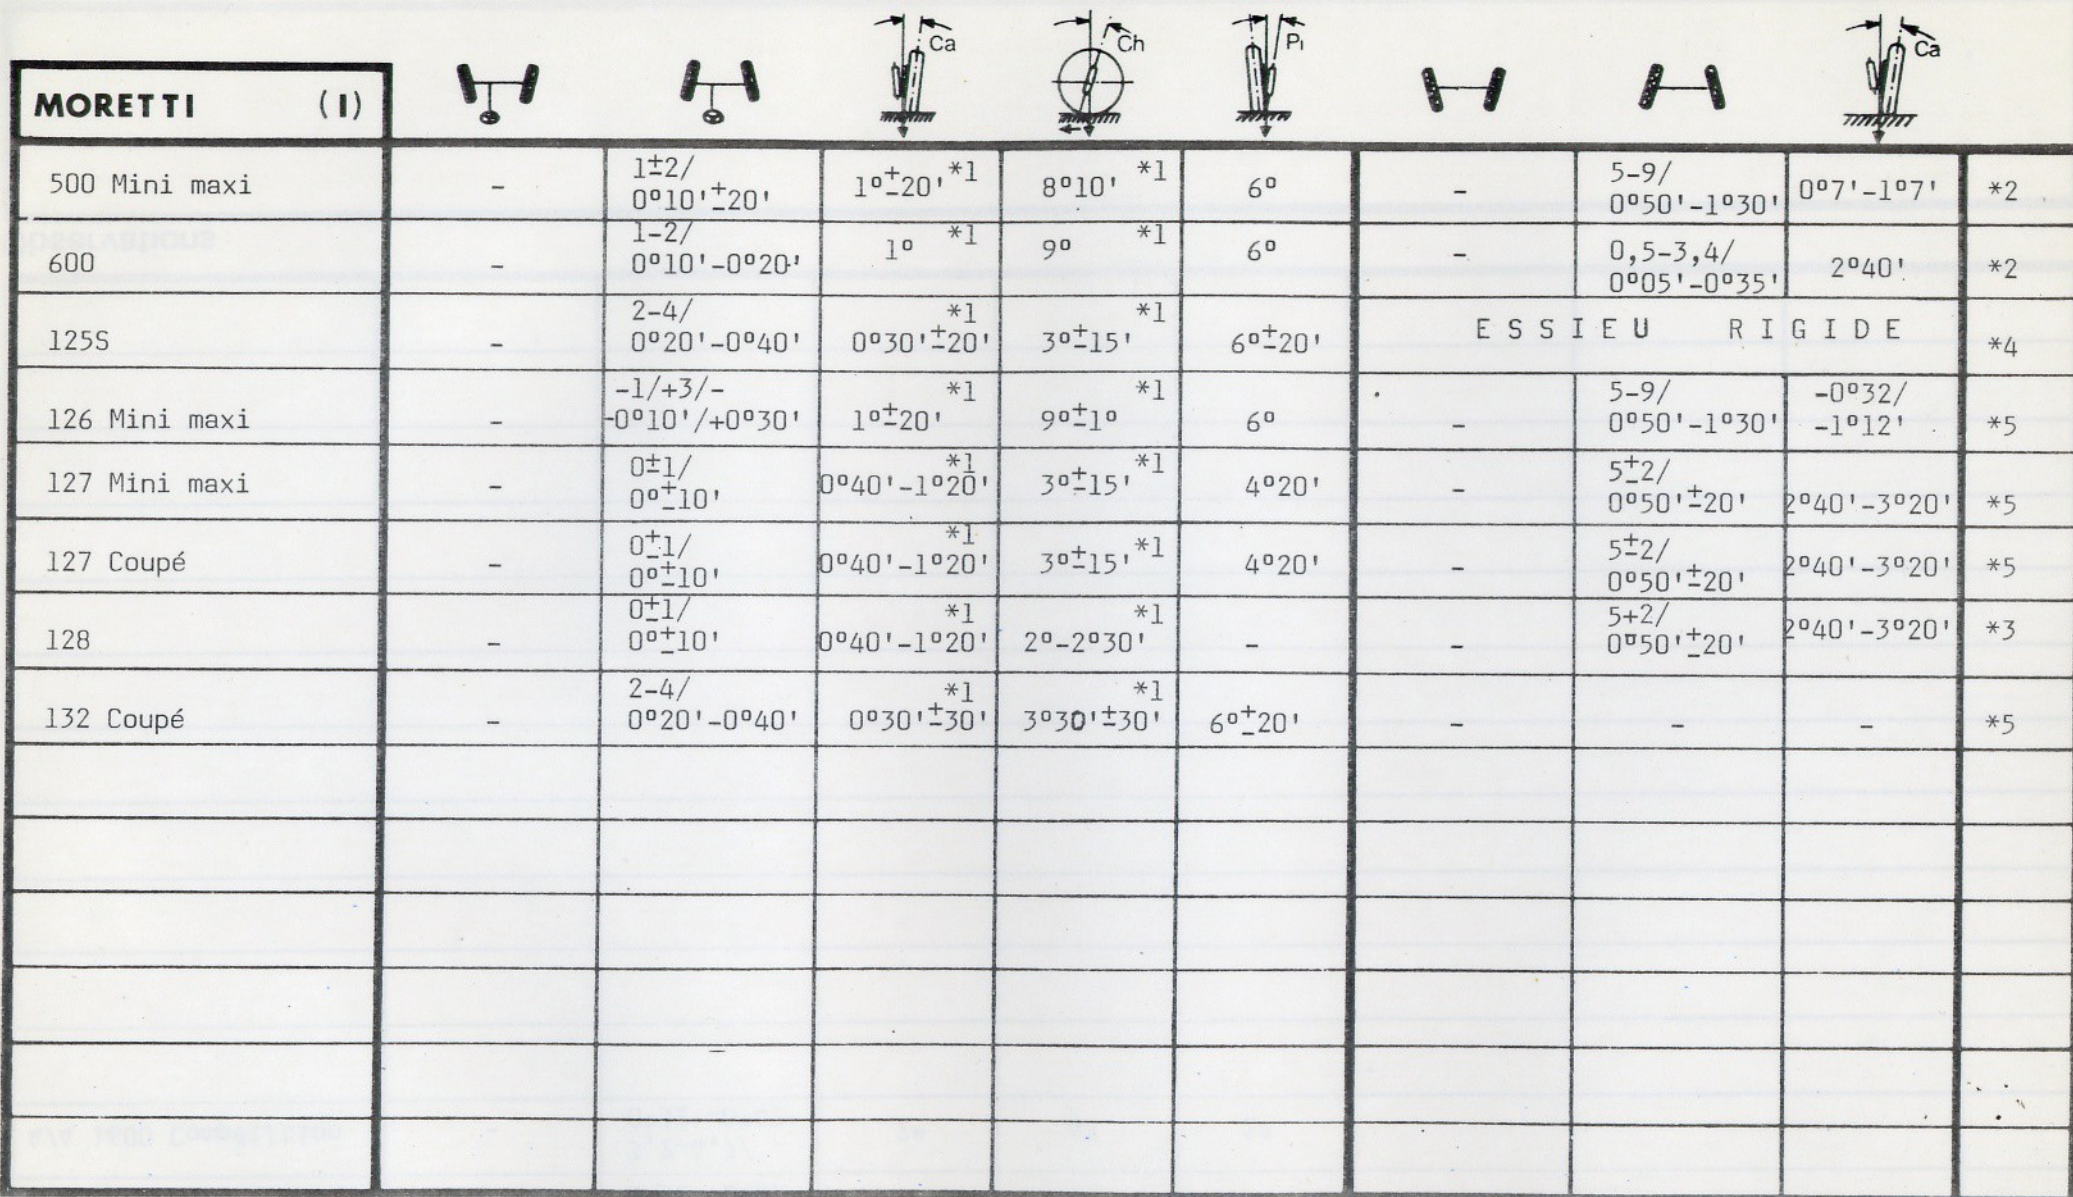 Ca
Ch
Pi
Ca
MORETTI (I)
500 Mini maxi - 1±2/ 0°10'±20' 1°±20' *1 8°10' *1 6° - 5-9/ 0°50'-1°30' 0°7'-1°7' *2
600 - 1-2/ 0°10'-0°20' 1° *1 9° *1 6° - 0,5-3,4/ 0°05'-0°35' 2°40' *2
125S - 2-4/ 0°20'-0°40' 0°30'±20' *1 3°±15' *1 6°±20' ESSIEU RIGIDE *4
126 Mini maxi - -1/+3/- -0°10'/+0°30' 1°±20' *1 9°±1° *1 6° - 5-9/ 0°50'-1°30' -0°32/ -1°12' *5
127 Mini maxi - 0±1/ 0°±10' 0°40'-1°20' *1 3°±15' *1 4°20' - 5±2/ 0°50'±20' 2°40'-3°20' *5
127 Coupé - 0±1/ 0°±10' 0°40'-1°20' *1 3°±15' *1 4°20' - 5±2/ 0°50'±20' 2°40'-3°20' *5
128 - 0±1/ 0°±10' 0°40'-1°20' *1 2°-2°30' *1 - - 5+2/ 0°50'±20' 2°40'-3°20' *3
132 Coupé - 2-4/ 0°20'-0°40' 0°30'±30' *1 3°30'±30' *1 6°±20' - - - *5